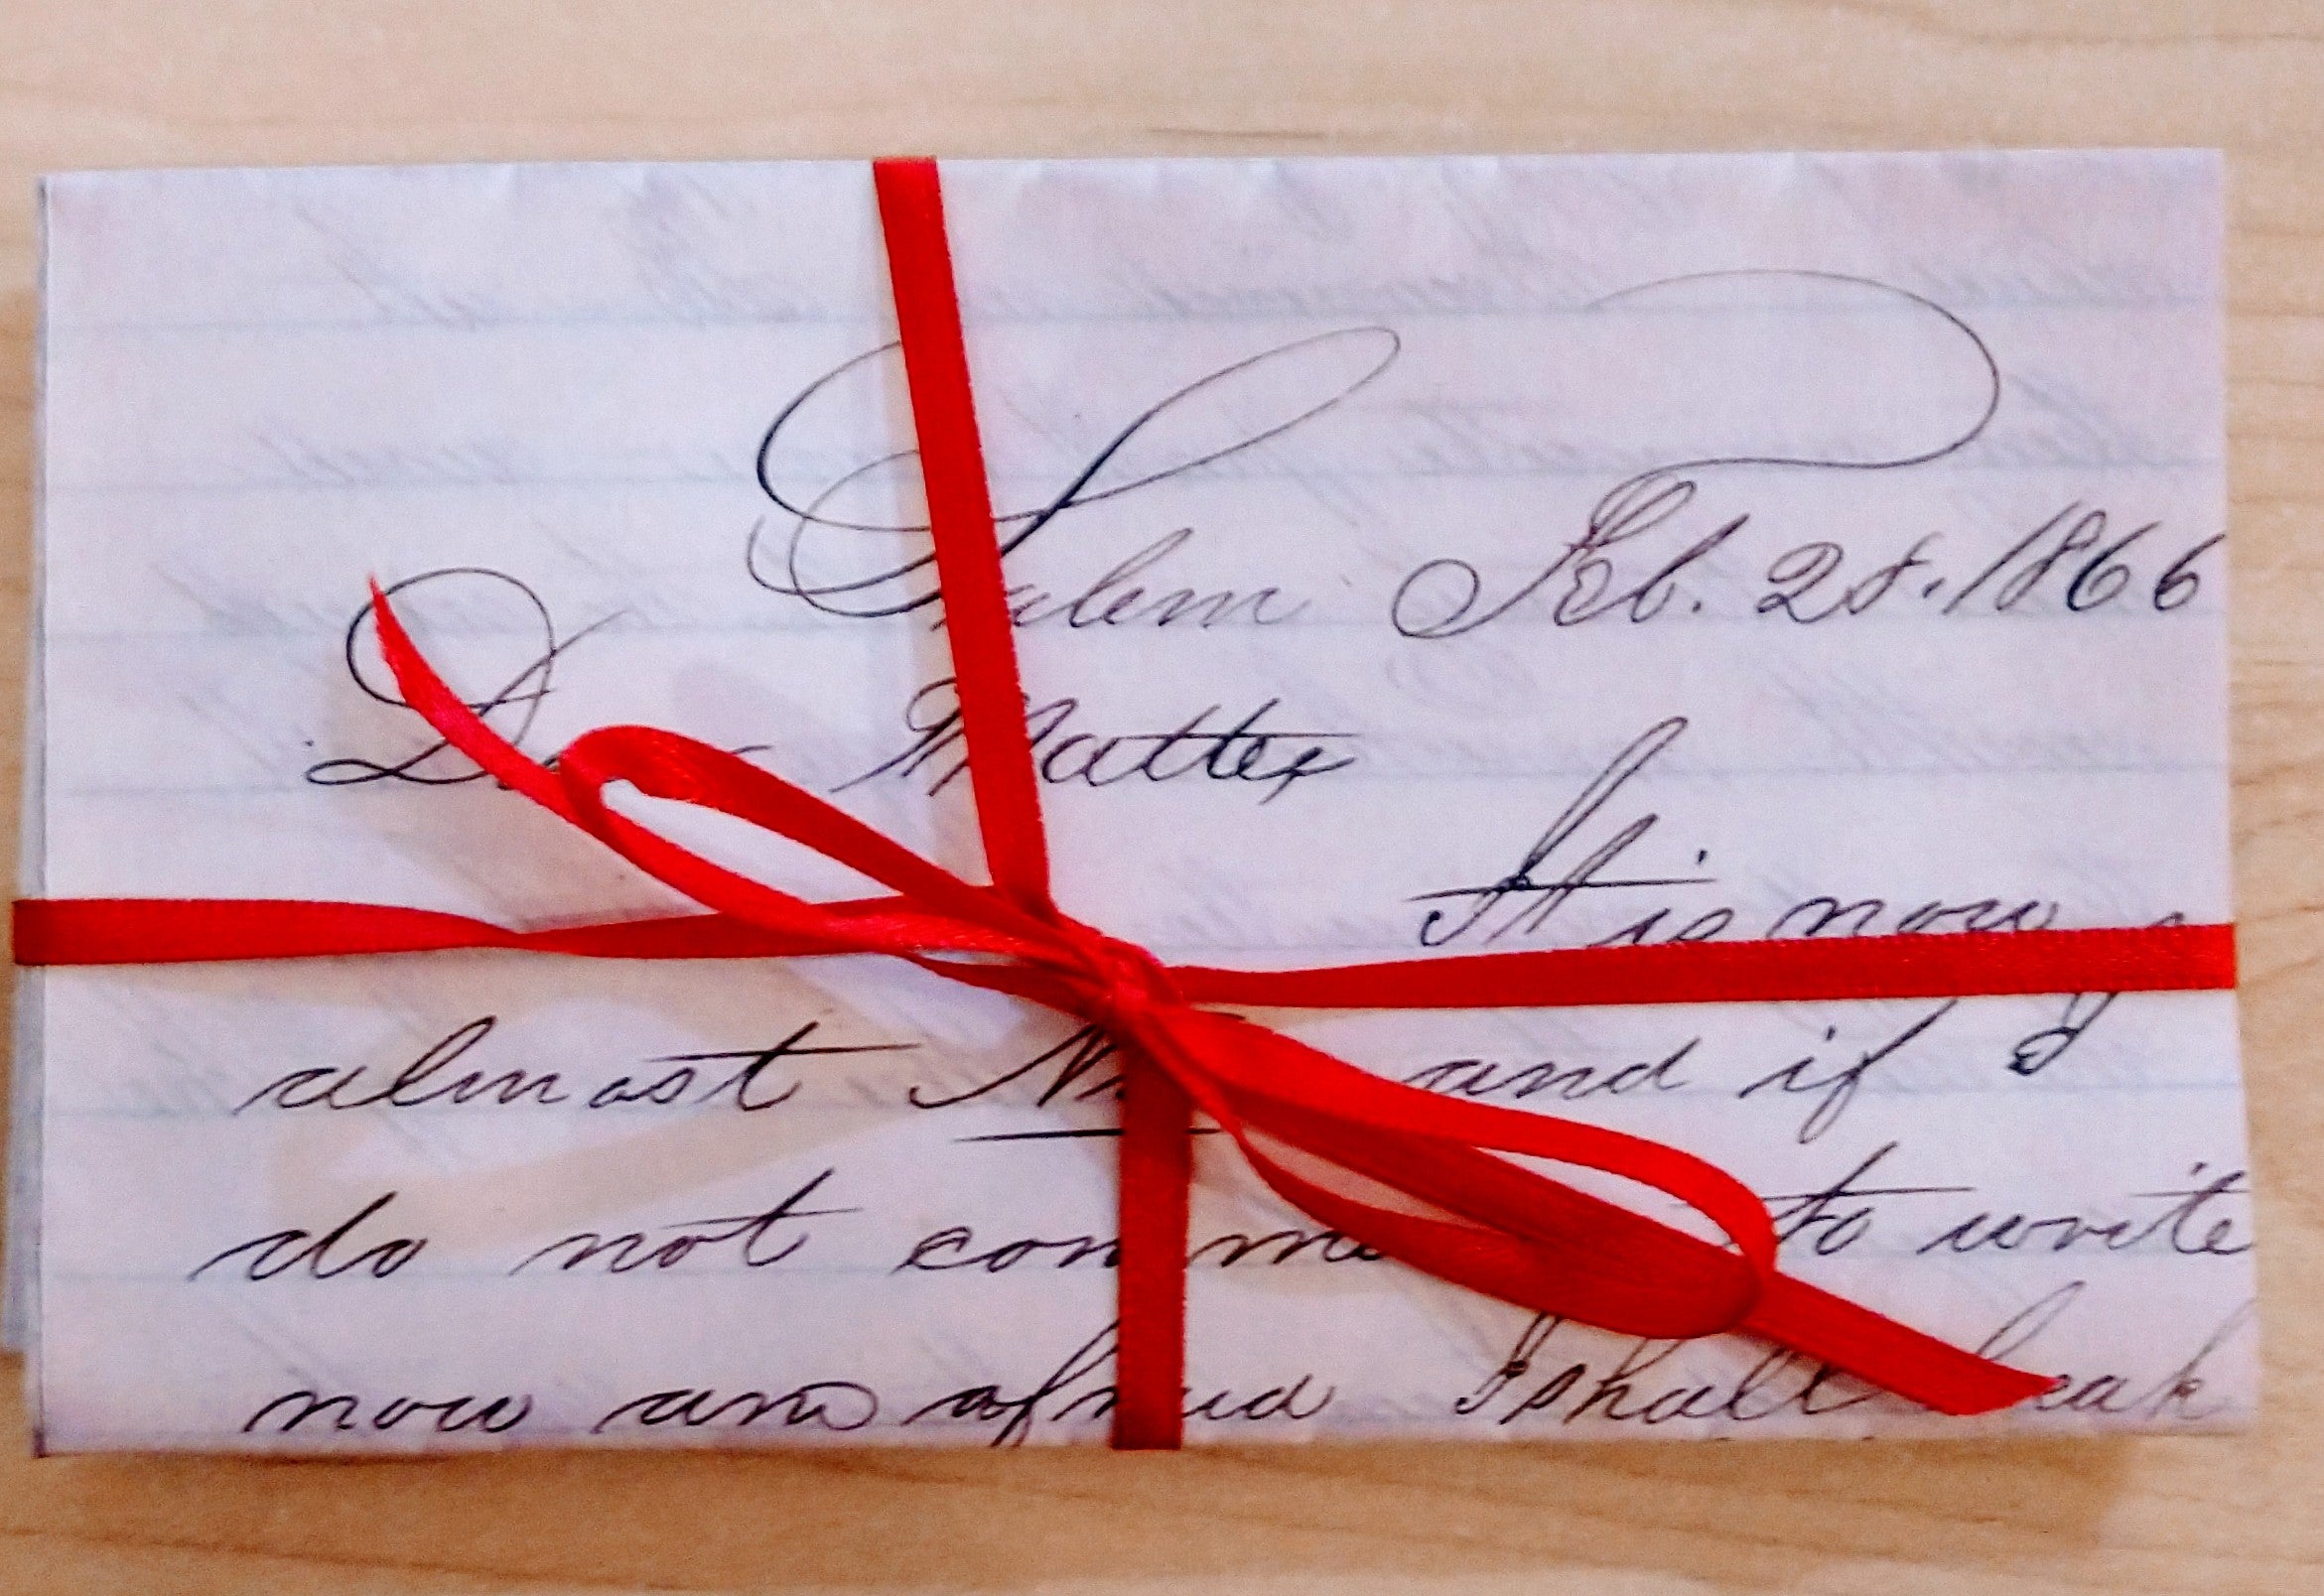 Salem Feb. 28. 1866
Dear Matter
It is now
almost and if I
do not commence to write
now am afraid I shall break